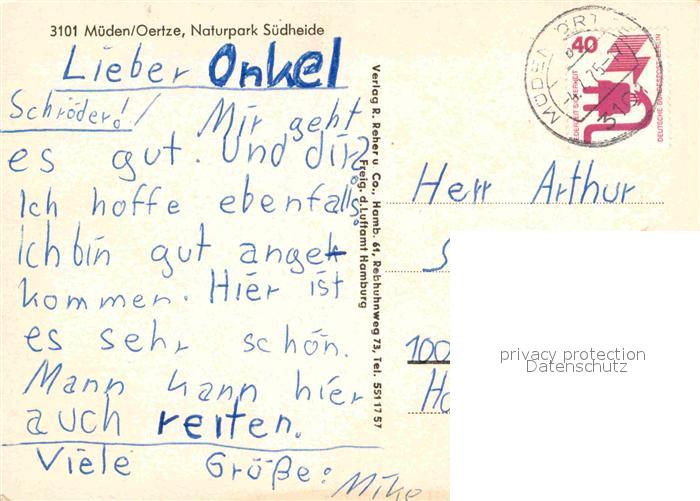 3101 Müden/Oertze, Naturpark Südheide
Lieber Onkel
Schröder!
Mir geht
es gut. Und dir?
Ich hoffe ebenfalls.
Ich bin gut ange-
kommen. Hier ist
es sehr schön.
Mann kann hier
auch reiten.
Viele Größe:
Mike
Verlag R. Reher u. Co., Hamb. 61, Rebhuhnweg 73, Tel. 551 17 57
Freig. d. Luftamt Hamburg
40
JEDERZEIT SICHERHEIT
DEUTSCHE BUNDESPOST BERLIN
Herr Arthur
privacy protection
Datenschutz